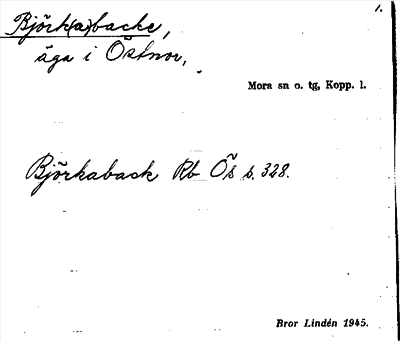 1.
Björk(a)backe,
äga i Östnor,
Mora sn o. tg, Kopp. l.
Björkaback Rb Ös s. 328.
Bror Lindén 1945.